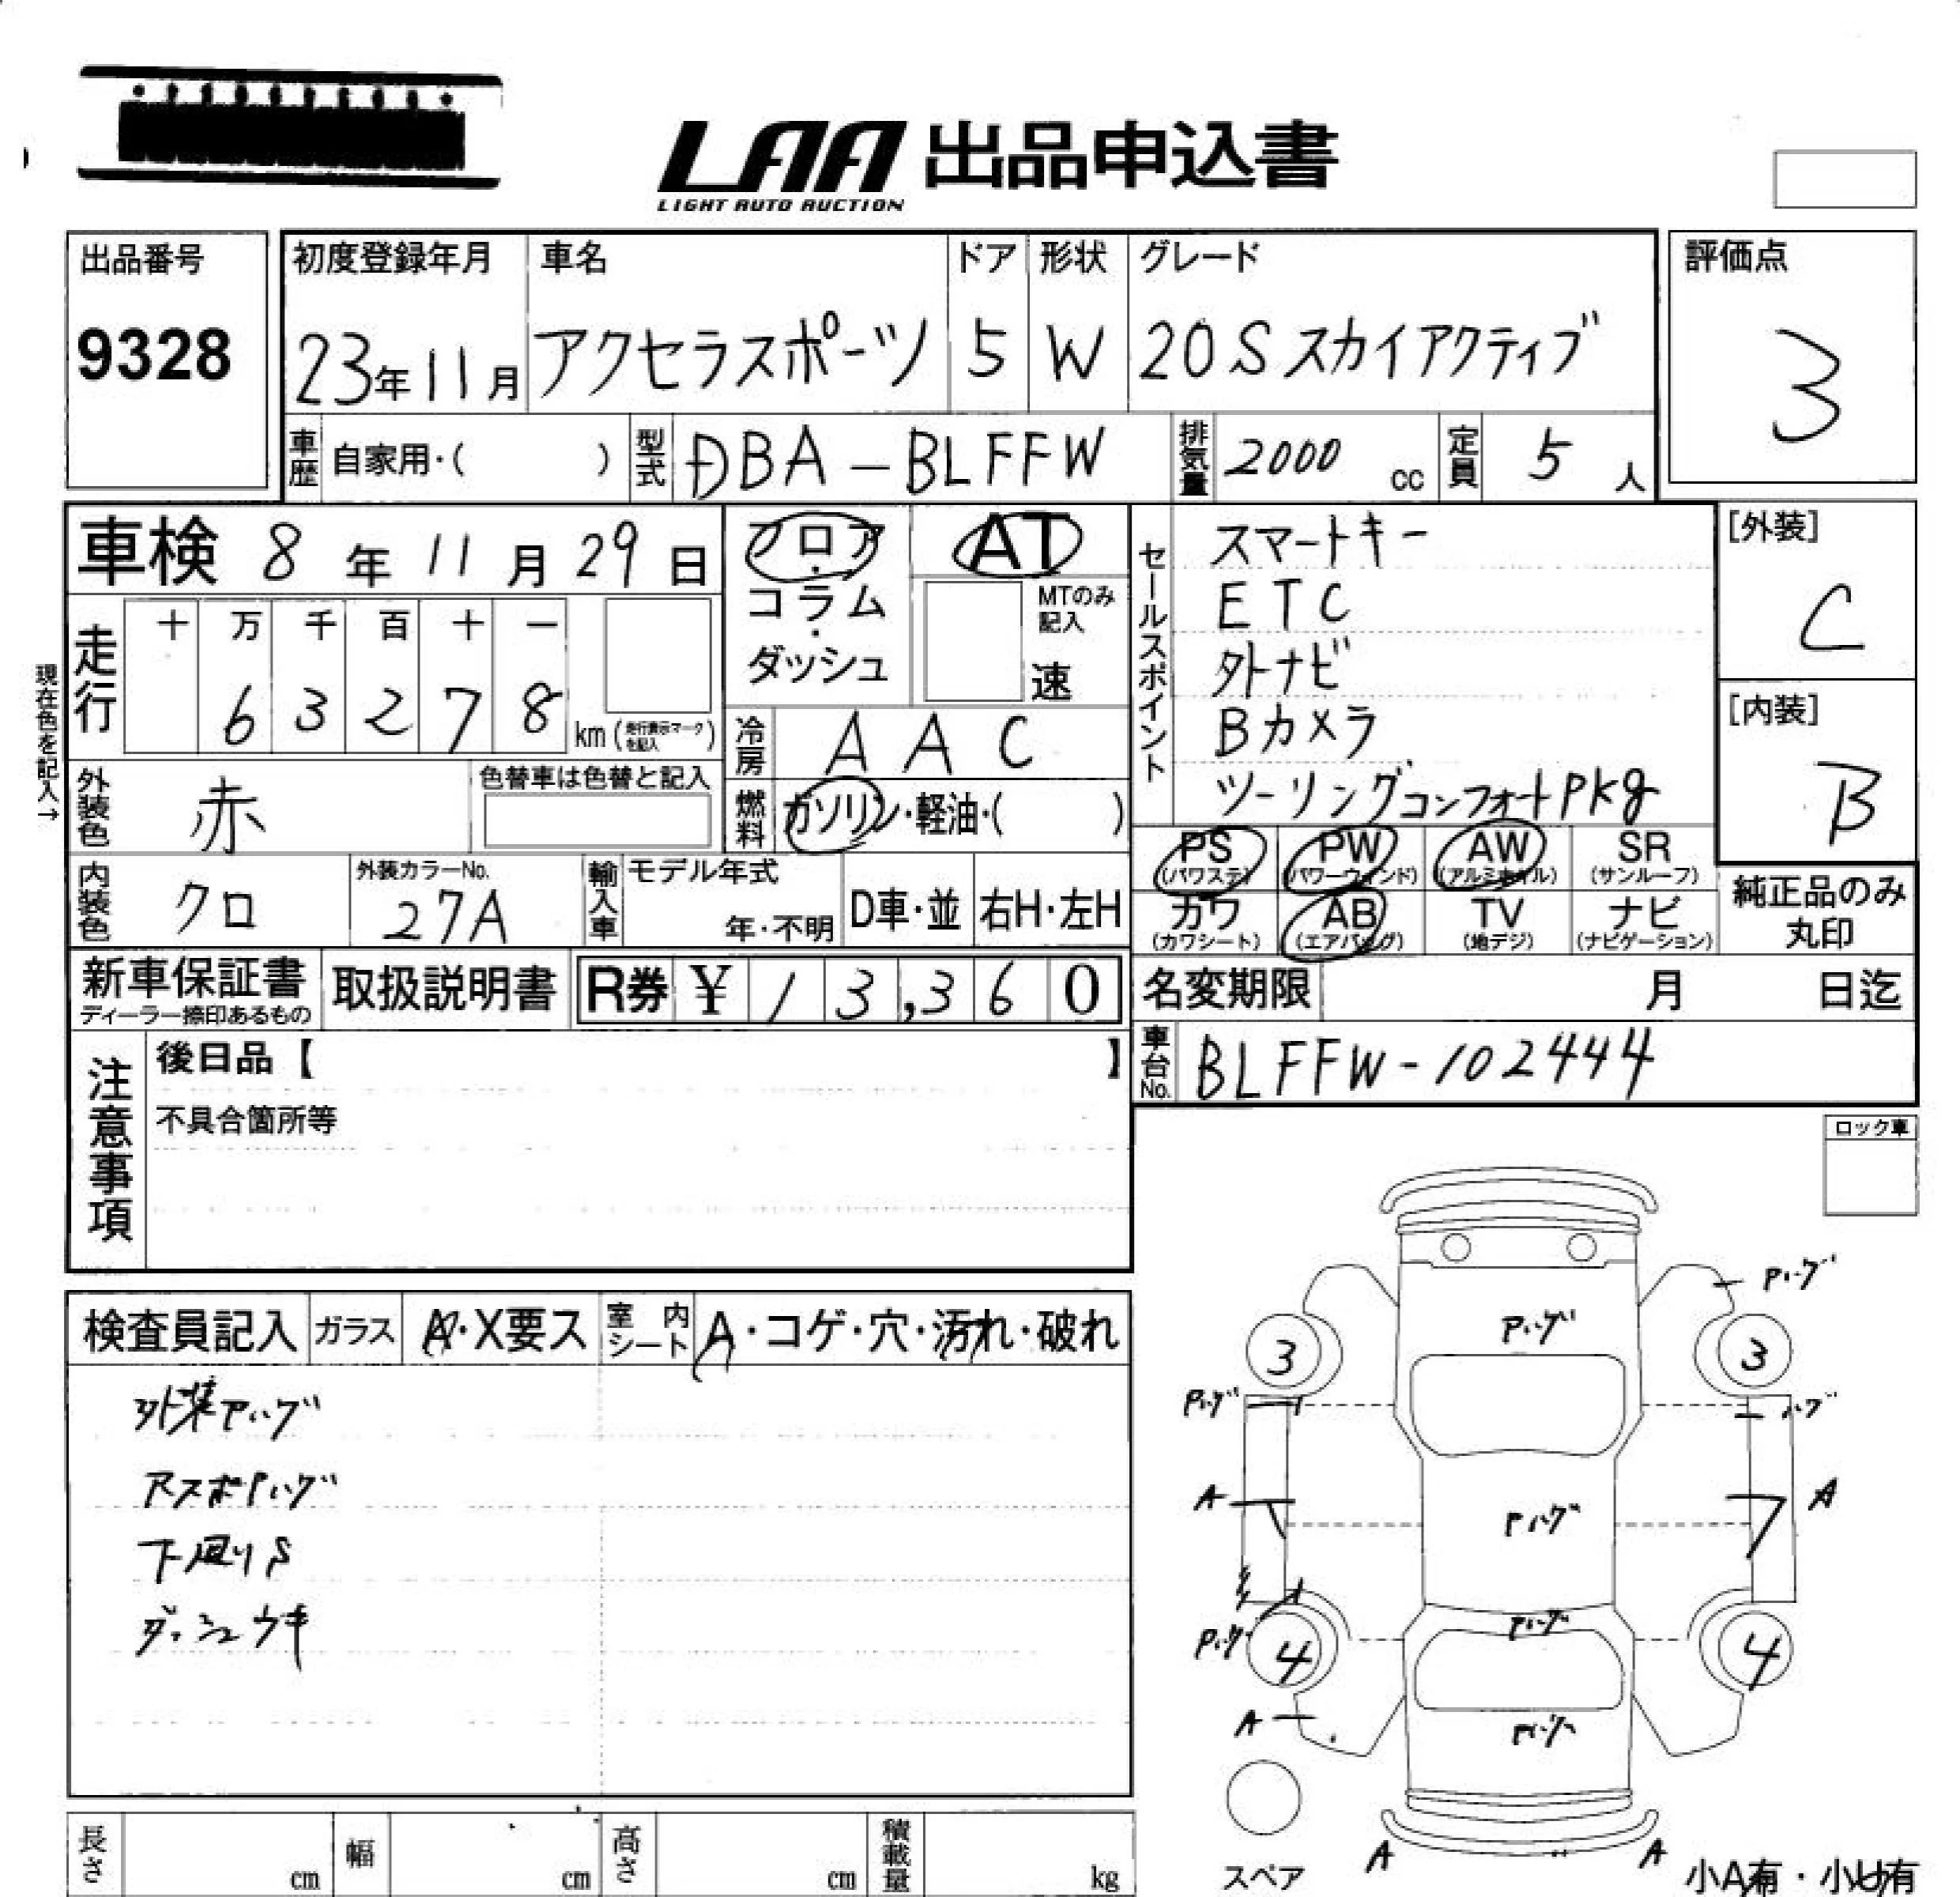 LAA 出品申込書
LIGHT AUTO AUCTION
出品番号
9328
初度登録年月
23年11月
車名
アクセラスポーツ
ドア
5
形状
W
グレード
20S スカイアクティブ
評価点
3
車歴 自家用・( )
型式 DBA-BLFFW
排気量 2000 cc
定員 5 人
車検 8年11月29日
フロア・コラム・ダッシュ
AT
MTのみ記入
速
セールスポイント
スマートキー
ETC
外ナビ
Bカメラ
ツーリングコンフォートPkg
[外装]
C
[内装]
B
現在色を記入→
走行
十 万 千 百 十 一
6 3 2 7 8 km (走行表示マークを記入)
冷房 AAC
燃料 ガソリン・軽油・( )
外装色 赤
色替車は色替と記入
内装色 クロ
外装カラーNo.
27A
輸入車
モデル年式
年・不明
D車・並
右H・左H
PS (パワステ)
PW (パワーウィンド)
AW (アルミホイル)
SR (サンルーフ)
カワ (カワシート)
AB (エアバッグ)
TV (地デジ)
ナビ (ナビゲーション)
純正品のみ
丸印
新車保証書
ディーラー捺印あるもの
取扱説明書
R券 ¥ 13,360
名変期限 月 日迄
車台No. BLFFW-102444
注意事項
後日品【 】
不具合箇所等
ロック車
検査員記入
ガラス A・X要ス
室内シート A・コゲ・穴・汚れ・破れ
外装Pハゲ
下回りS
ダッシュウキ
Pハゲ
Pハゲ
3
3
Pハゲ
ハゲ
A
A
Pハゲ
Pハゲ
Pハゲ
4
4
A
Pハゲ
スペア
A
A
小A有・小U有
長さ cm
幅 cm
高さ cm
積載量 kg